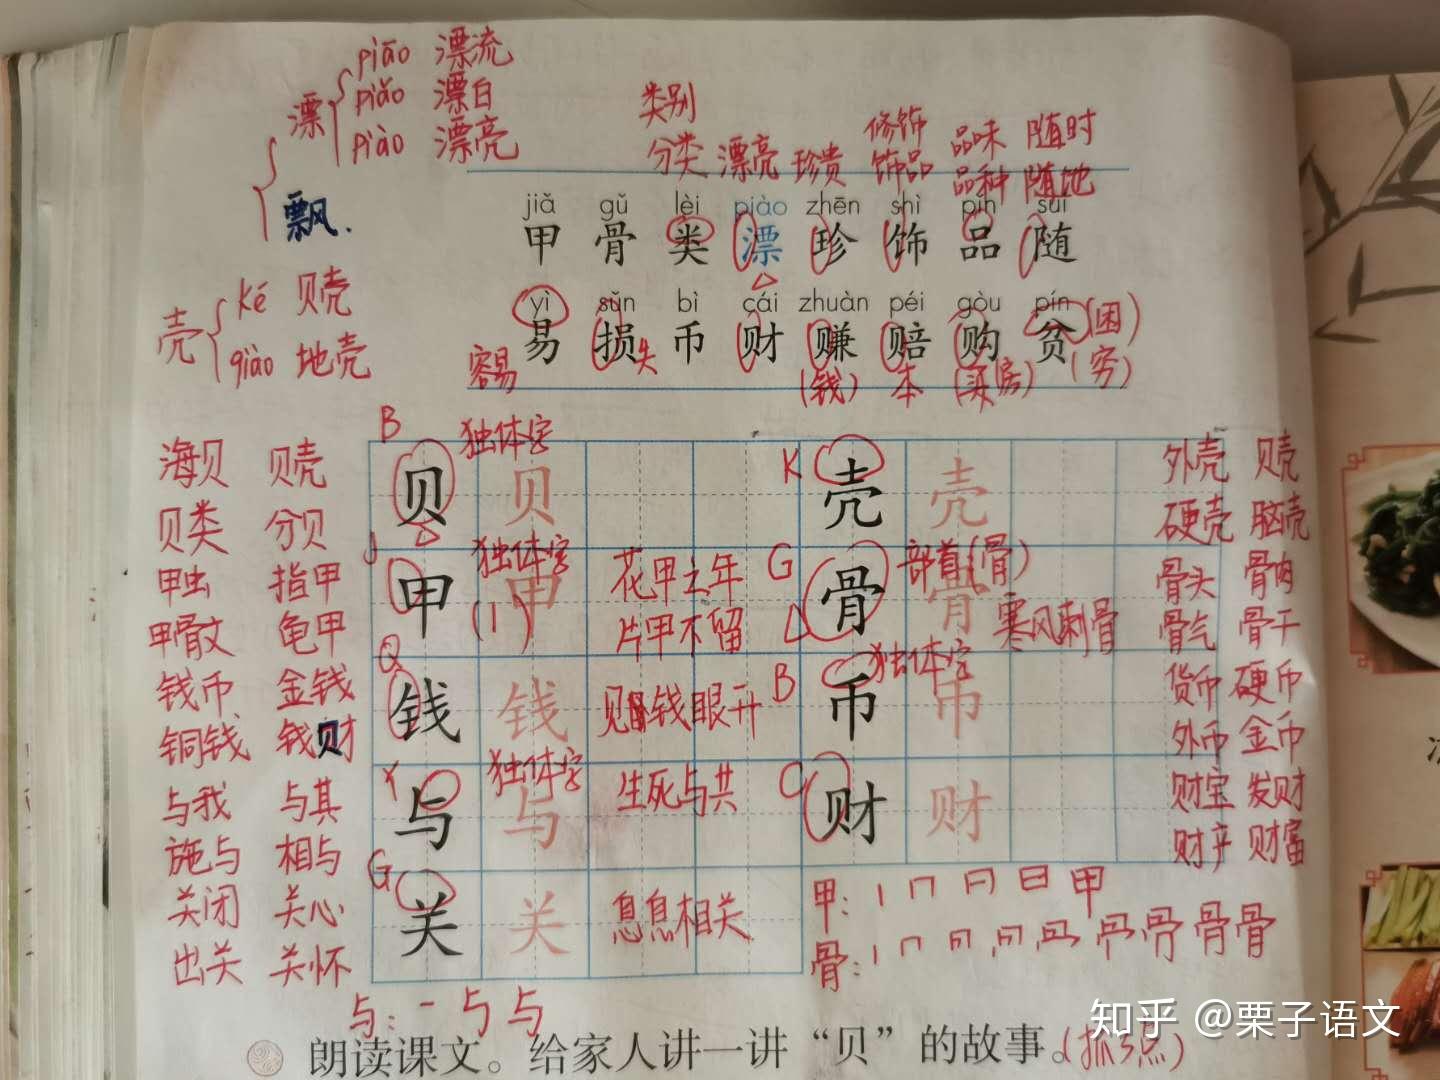 漂 piāo 漂流
piǎo 漂白
piào 漂亮
飘.
壳 ké 贝壳
qiào 地壳
类别 修饰 品味 随时
分类 漂亮 珍贵 饰品 品种 随地
jiǎ gǔ lèi piào zhēn shì pǐn suí
甲 骨 类 漂 珍 饰 品 随
yì sǔn bì cái zhuàn péi gòu pín
易 损失 币 财 赚 赔 购 贫(困)
容易 (钱) 本 (买房) (穷)
海贝 贝壳 B 贝 独体字 贝 K 壳 壳 外壳 贝壳
贝类 分贝 硬壳 脑壳
甲虫 指甲 J 甲 独体字 甲 花甲之年 G 骨 部首(骨) 骨 骨头 骨肉
甲骨文 龟甲 (丨) 片甲不留 寒风刺骨 骨气 骨干
钱币 金钱 Q 钱 钱 见钱眼开 B 币 独体字 币 货币 硬币
铜钱 钱财 外币 金币
与我 与其 Y 与 独体字 与 生死与共 C 财 财 财宝 发财
施与 相与 财产 财富
关闭 关心 G 关 关 息息相关 甲:
出关 关怀 骨:
与: 一 与 与
朗读课文。给家人讲一讲“贝”的故事。(抓3点)
知乎 @栗子语文